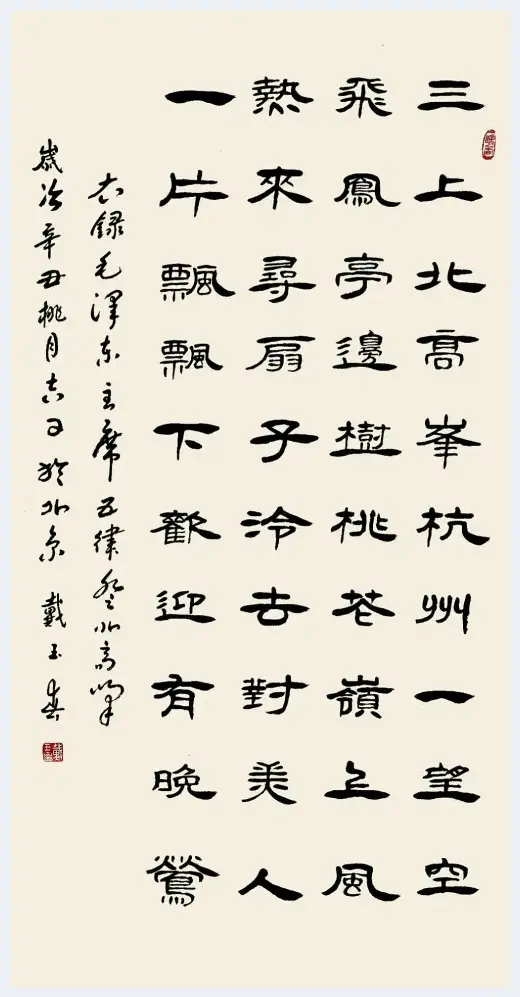 三上北高峯杭州一望空
飛鳳亭邊樹桃花嶺上風
熱來尋扇子泠去對美人
一片飄飄下歡迎有晚鶯
右録毛澤东主席五律登北高峯
歲次辛丑桃月吉日於北京 戴玉